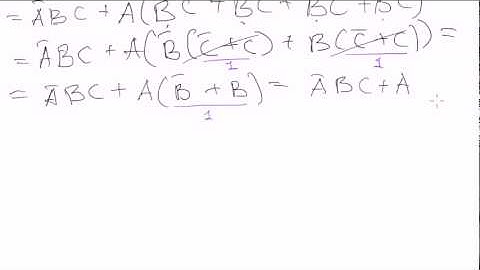 = A̅BC + A(B̅C̅ + B̅C + BC̅ + BC)
= A̅BC + A(B̅(C̅+C) + B(C̅+C)) =
1 1
= A̅BC + A(B̅ + B) = A̅BC + A
1